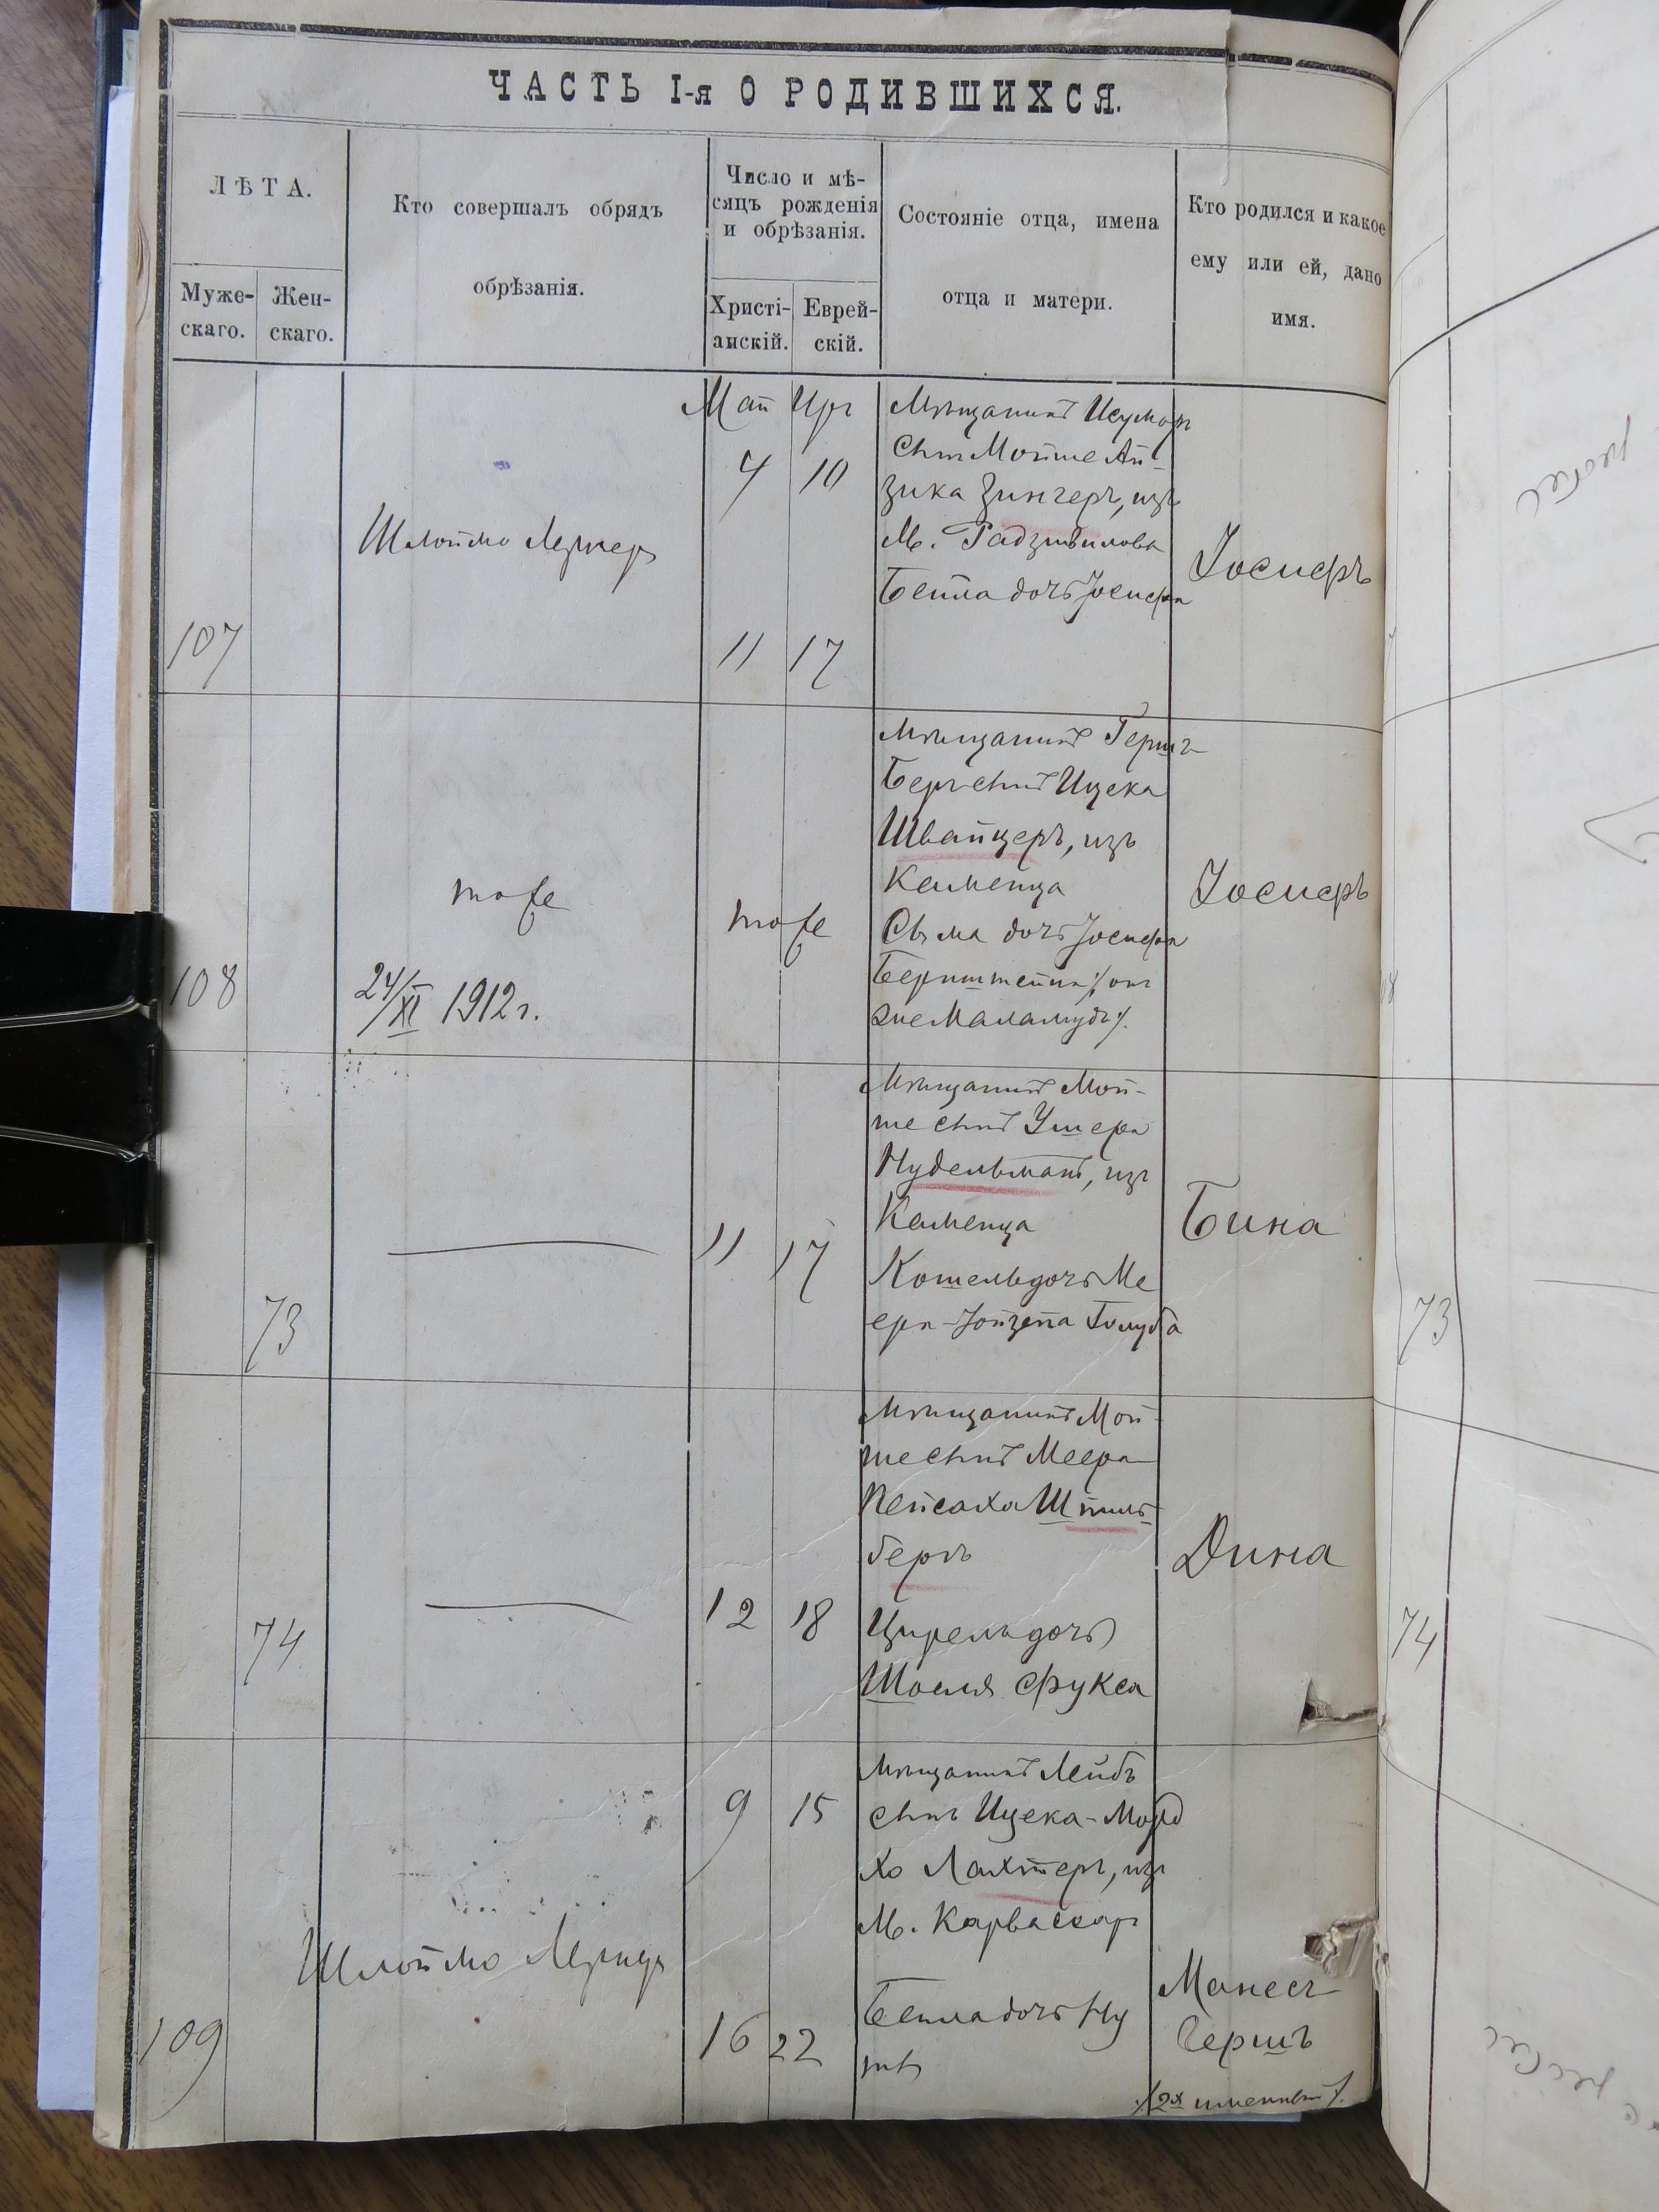 ЧАСТЬ I-я О РОДИВШИХСЯ.
ЛѢТА.
Муже-
скаго.
Жен-
скаго.
Кто совершалъ обрядъ
обрѣзанія.
Число и мѣ-
сяцъ рожденія
и обрѣзанія.
Христі-
анскій.
Еврей-
скій.
Состояніе отца, имена
отца и матери.
Кто родился и какое
ему или ей, дано
имя.
107
Шлоймо
Май
4 10
11 17
Мѣщанинъ
сынъ Мойше Ай-
зика Зингеръ, изъ
М. Радзивилова
Бейла дочь Іосифа
Іосифъ
108
тоже
24/XI 1912 г.
тоже
Мѣщанинъ Гершъ-
Беръ сынъ Ицека
Швайцеръ, изъ
Каменца
Сима дочь Іосифа
Бернштейна /: онъ
же Маламудъ :/.
Іосифъ
73
11 17
Мѣщанинъ Мой-
ше сынъ Ушера
Нудельманъ, изъ
Каменца
дочь Ме
ера-Іойзепа Голуба
Бина
73
74
12 18
Мѣщанинъ Мой-
ше сынъ Меера
Пейсаха Шпиль-
бергъ
Цирель дочь
Шоеля Фукса
Дина
74
109
Шлоймо
9 15
16 22
Мѣщанинъ Лейбъ
сынъ Ицека-Морд
хо Лахтеръ, изъ
М. Карвасаръ
Бейла дочь Ну
ты
Манесъ
Гершъ
/: 2х именный :/.